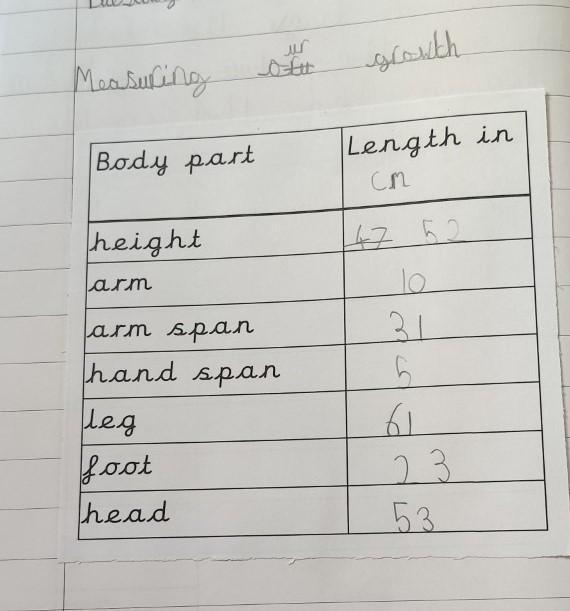 Measuring our growth
Body part Length in cm
height 47 52
arm 10
arm span 31
hand span 5
leg 61
foot 23
head 53